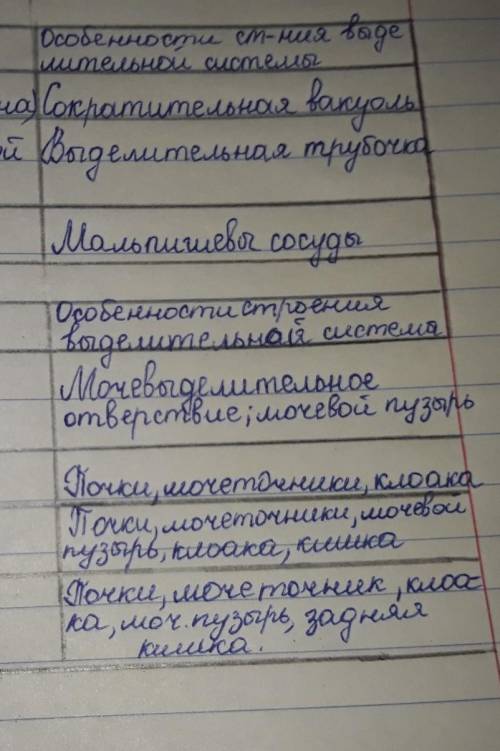 Особенности ст-ния выде
лительной системы
на) Сократительная вакуоль
ой Выделительная трубочка
Мальпишевы сосуды
Особенности строения
выделительной система
Мочевыделительное
отверствие; мочевой пузырь
Почки, мочеточники, клоака
Почки, мочеточники, мочевой
пузырь, клоака, кишка
Почки, мочеточник, клоа-
ка, моч. пузырь, задняя
кишка.